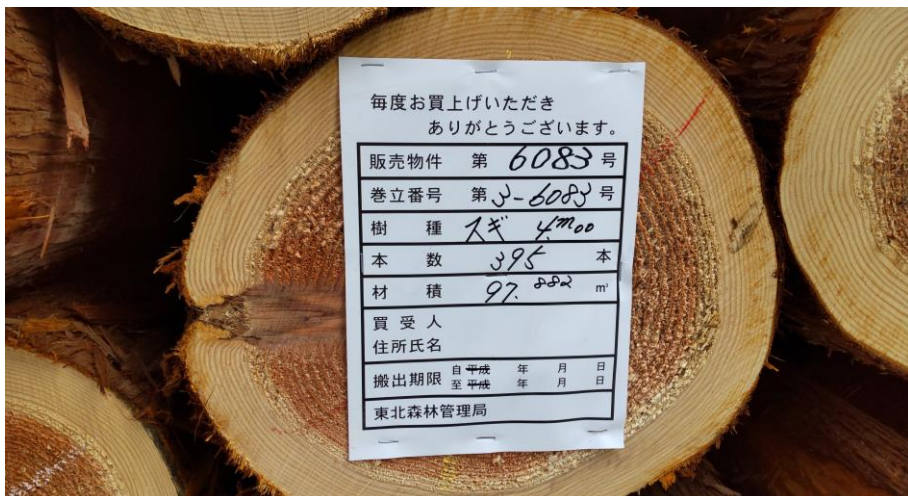 毎度お買上げいただき
ありがとうございます。
販売物件 第 6083 号
巻立番号 第 3-6083 号
樹種 スギ 4m00
本数 395 本
材積 97.882 m³
買受人
住所氏名
搬出期限 自 平成 年 月 日
至 平成 年 月 日
東北森林管理局